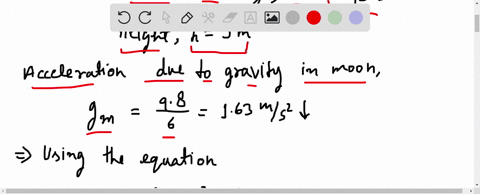 height, h = 3m
Acceleration due to gravity in moon,
gm = 9.8/6 = 1.63 m/s² ↓
⇒ Using the equation